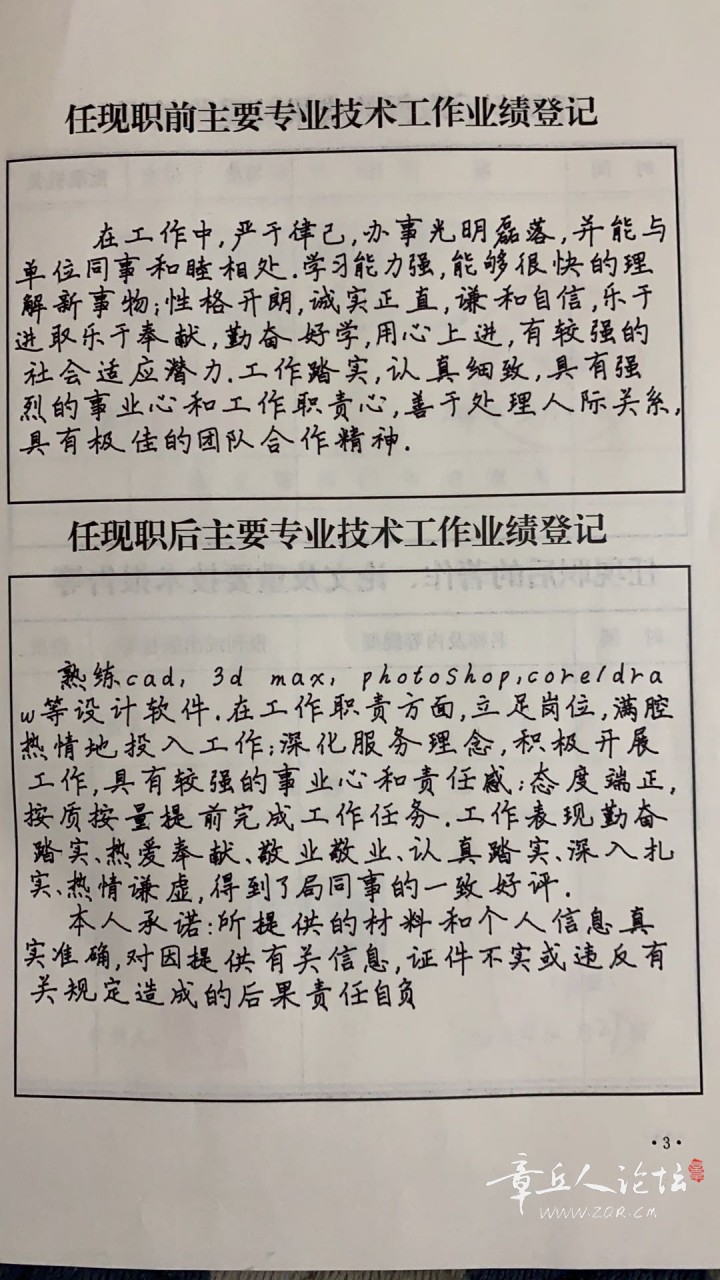 任现职前主要专业技术工作业绩登记
在工作中,严于律己,办事光明磊落,并能与
单位同事和睦相处.学习能力强,能够很快的理
解新事物;性格开朗,诚实正直,谦和自信,乐于
进取乐于奉献,勤奋好学,用心上进,有较强的
社会适应潜力.工作踏实,认真细致,具有强
烈的事业心和工作职责心,善于处理人际关系,
具有极佳的团队合作精神.
任现职后主要专业技术工作业绩登记
熟练cad, 3d max, photoshop,coreldra
w等设计软件.在工作职责方面,立足岗位,满腔
热情地投入工作;深化服务理念,积极开展
工作,具有较强的事业心和责任感;态度端正,
按质按量提前完成工作任务.工作表现勤奋
踏实、热爱奉献、敬业敬业、认真踏实、深入扎
实、热情谦虚,得到了局同事的一致好评.
本人承诺:所提供的材料和个人信息真
实准确,对因提供有关信息,证件不实或违反有
关规定造成的后果责任自负
·3·
章丘人论坛
WWW.ZQR.CM